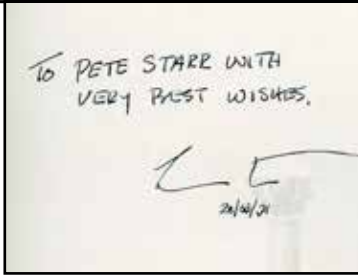 To PETE STARR WITH
VERY BEST WISHES.